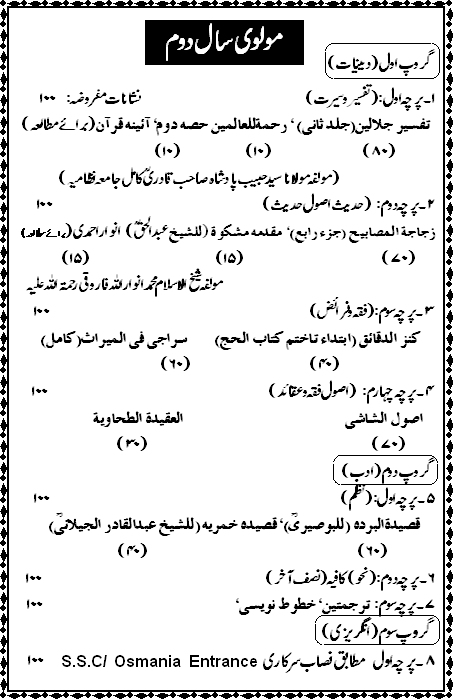 مولوی سال دوم
گروپ اول (دینیات)
۱۔ پرچہ اول: (تفسیر وسیرت) نشانات مفروضہ: ۱۰۰
تفسیر جلالین (جلد ثانی)‘ رحمة للعالمین حصہ دوم‘ آئینہ قرآن (برائے مطالعہ)
(۸۰) (۱۰) (۱۰)
(مولفہ مولانا سید حبیب پادشاہ صاحب قادریؒ کامل جامعہ نظامیہ)
۲۔ پرچہ دوم: (حدیث اصول حدیث) ۱۰۰
زجاجة المصابیح (جزء رابع)‘ مقدمہ مشکوة (للشیخ عبدالحقؒ) انوار احمدی (برائے مطالعہ)
(۷۰) (۱۵) (۱۵)
مولفہ شیخ الاسلام محمد انوار اللہ فاروقی رحمة اللہ علیہ
۳۔ پرچہ سوم: (فقہ وفرائض) ۱۰۰
کنز الدقائق (ابتداء تاختم کتاب الحج) سراجی فی المیراث (کامل)
(۴۰) (۶۰)
۴۔ پرچہ چہارم: (اصول فقہ وعقائد) ۱۰۰
اصول الشاشی العقیدة الطحاویة
(۷۰) (۳۰)
گروپ دوم (ادب)
۵۔ پرچہ اول: (نظم) ۱۰۰
قصیدة البردہ (للبوصیریؒ)‘ قصیدہ خمریہ (للشیخ عبدالقادر الجیلانیؒ)
(۶۰) (۴۰)
۶۔ پرچہ دوم: (نحو) کافیہ (نصف آخر) ۱۰۰
۷۔ پرچہ سوم: ترجمتین‘ خطوط نویسی‘ ۱۰۰
گروپ سوم (انگریزی)
۸۔ پرچہ اول مطابق نصاب سرکاری S.S.C/ Osmania Entrance ۱۰۰